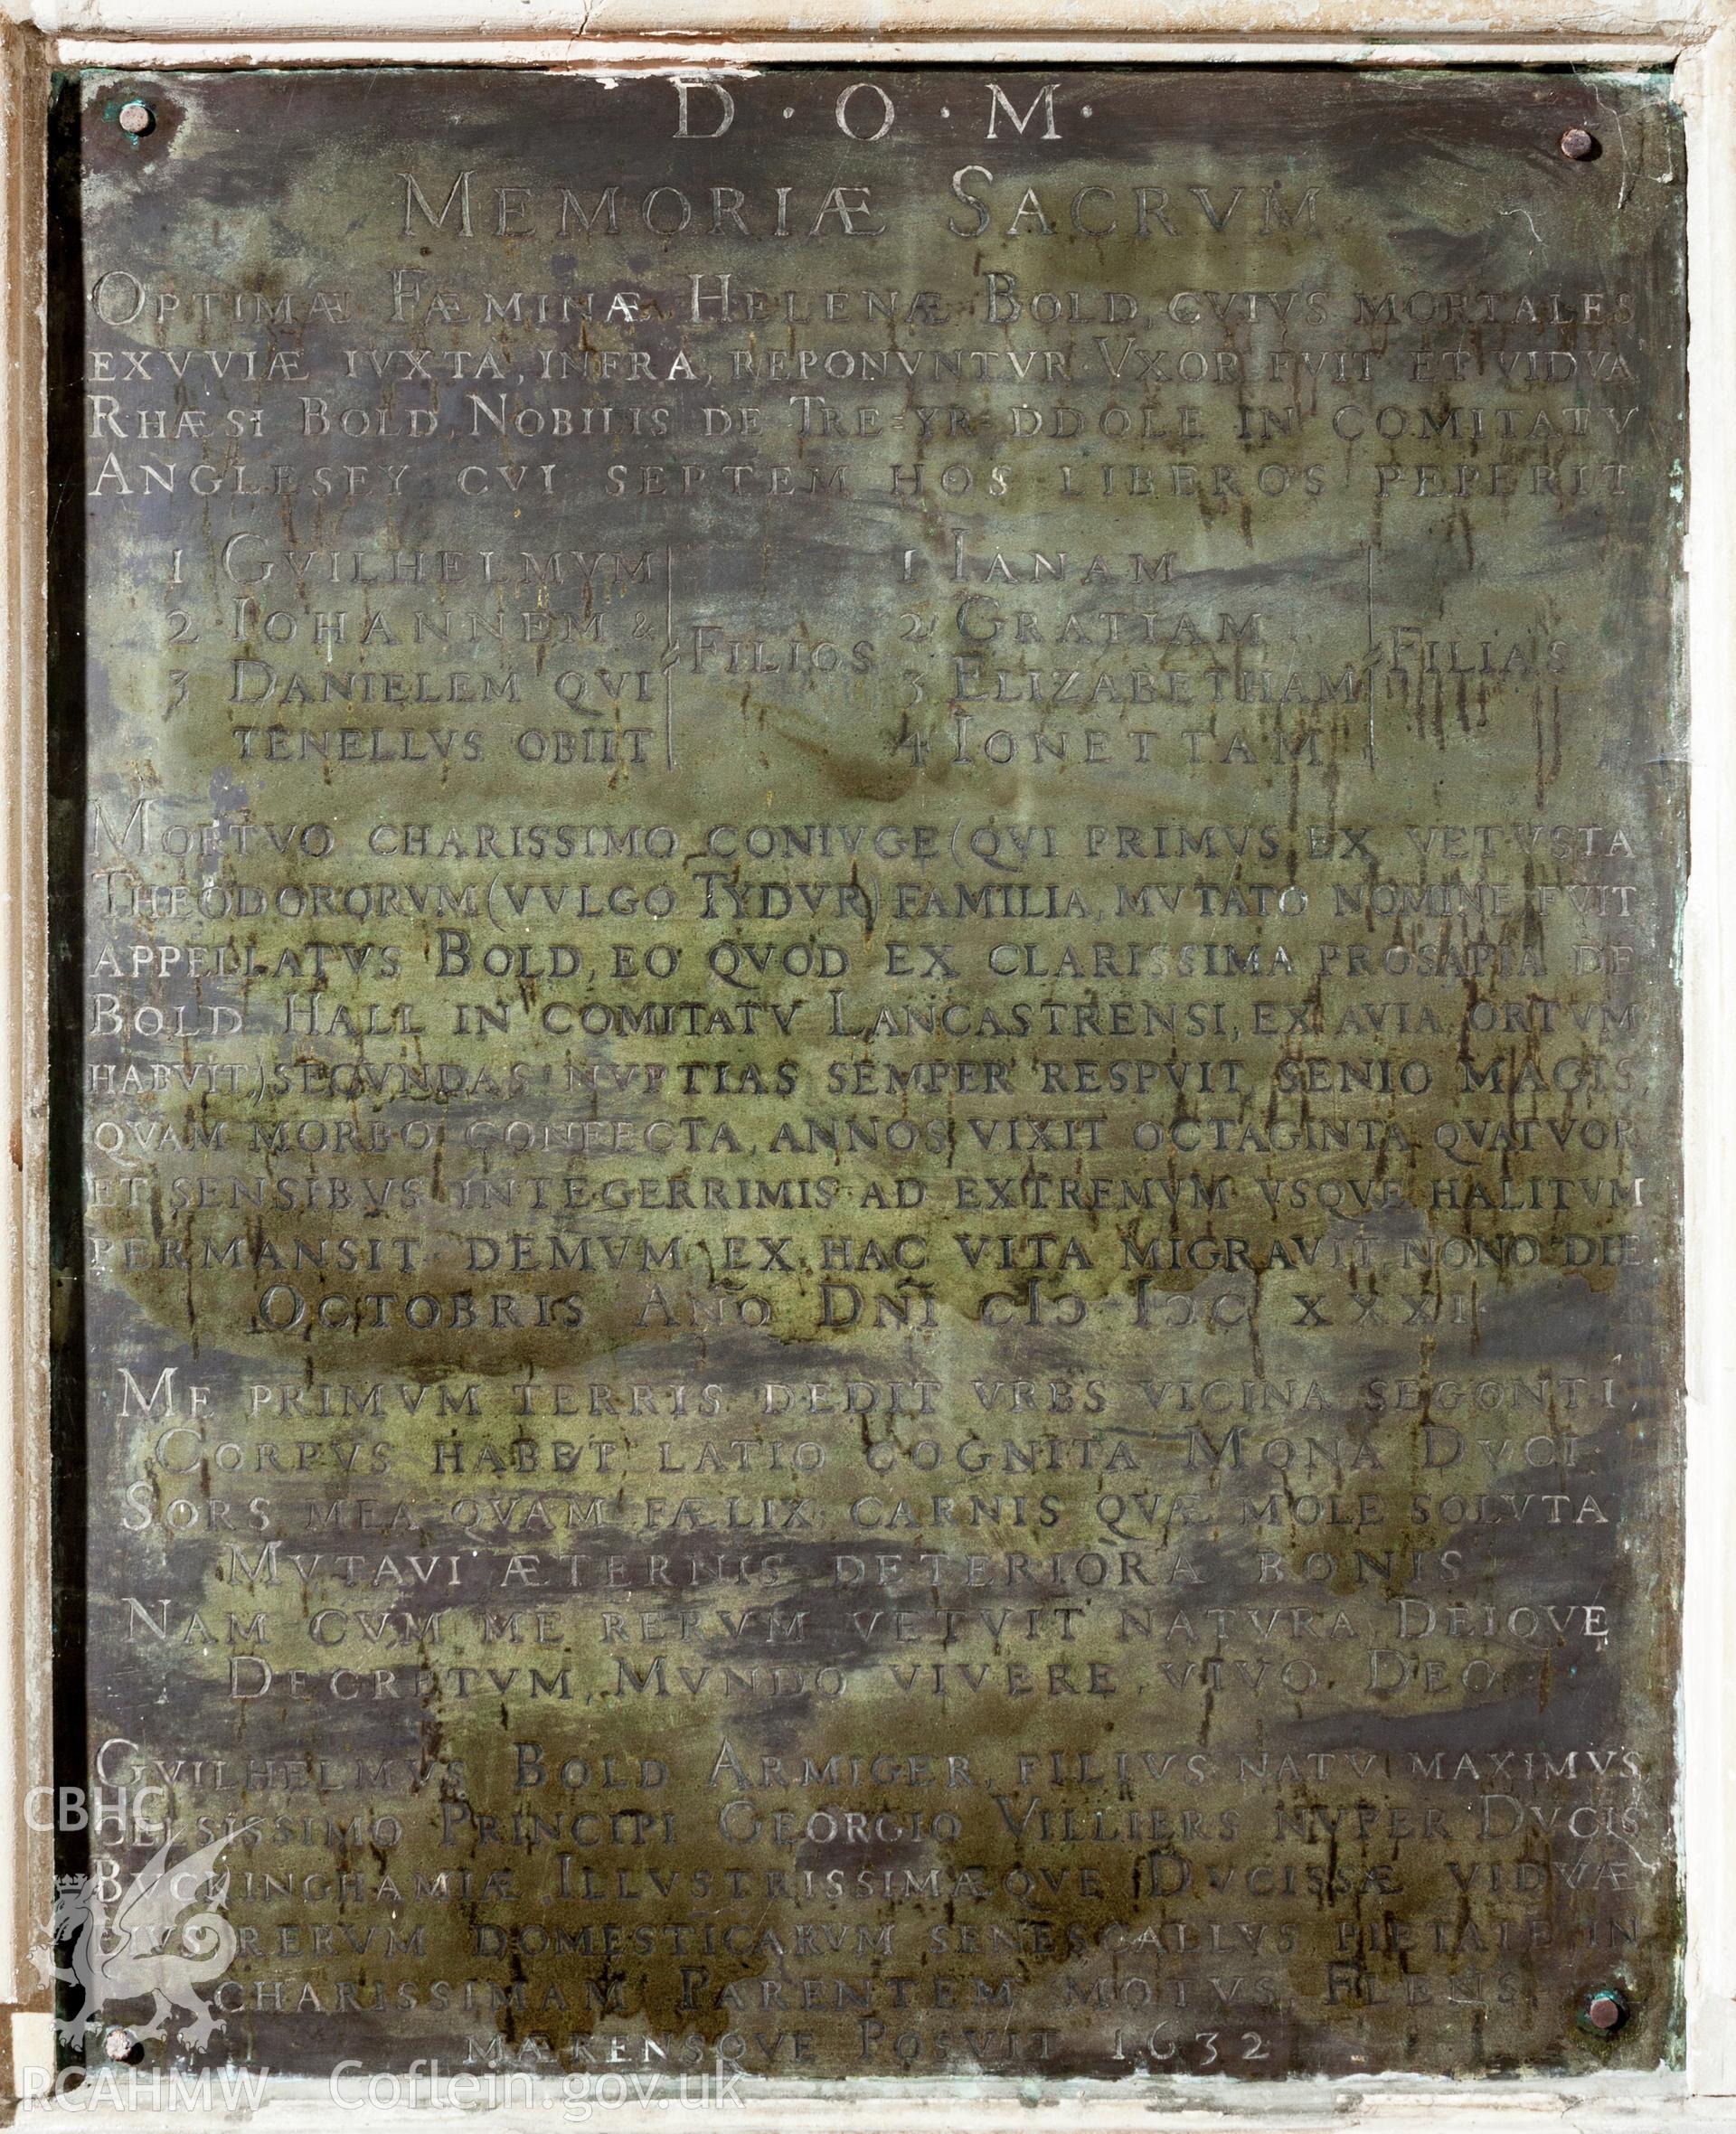 D · O · M ·
MEMORIÆ SACRVM
OPTIMÆ FÆMINÆ HELENÆ BOLD, CVIVS MORTALES
EXVVIÆ IVXTA, INFRA, REPONVNTVR · VXOR FVIT ET VIDVA
RHÆSI BOLD, NOBILIS DE TRE=YR-DDOLE IN COMITATV
ANGLESEY CVI SEPTEM HOS LIBEROS PEPERIT
1 GVILHELMVM 1 IANAM
2 IOHANNEM & FILIOS 2 GRATIAM FILIAS
3 DANIELEM QVI 3 ELIZABETHAM
TENELLVS OBIIT 4 IONETTAM
MORTVO CHARISSIMO CONIVGE (QVI PRIMVS EX VETVSTA
THEODORORVM (VVLGO TYDVR) FAMILIA, MVTATO NOMINE FVIT
APPELLATVS BOLD, EO QVOD EX CLARISSIMA PROSAPIA DE
BOLD HALL IN COMITATV LANCASTRENSI, EX AVIA ORTVM
HABVIT) SECVNDAS NVPTIAS SEMPER RESPVIT, SENIO MAGIS,
QVAM MORBO CONFECTA, ANNOS VIXIT OCTAGINTA QVATVOR
ET SENSIBVS INTEGERRIMIS AD EXTREMVM VSQVE HALITVM
PERMANSIT DEMVM EX HAC VITA MIGRAVIT NONO DIE
OCTOBRIS AÑO DÑI CIƆ IƆC XXXI
ME PRIMVM TERRIS DEDIT VRBS VICINA SEGONTI,
CORPVS HABET LATIO COGNITA MONA DVCI
SORS MEA QVAM FÆLIX CARNIS QVÆ MOLE SOLVTA
MVTAVI ÆTERNIS DETERIORA BONIS
NAM CVM ME RERVM VETVIT NATVRA, DEIQVE
DECRETVM, MVNDO VIVERE, VIVO DEO
GVILHELMVS BOLD ARMIGER, FILIVS NATV MAXIMVS,
CELSISSIMO PRINCIPI GEORGIO VILLIERS NVPER DVCIS
BVCKINGHAMIÆ, ILLVSTRISSIMÆQVE DVCISSÆ VIDVÆ
EIVS RERVM DOMESTICARVM SENESCALLVS, PIETATE IN
CHARISSIMAM PARENTEM MOTVS FLENS
MÆRENSQVE POSVIT 1632
CBHC
RCAHMW Coflein.gov.uk